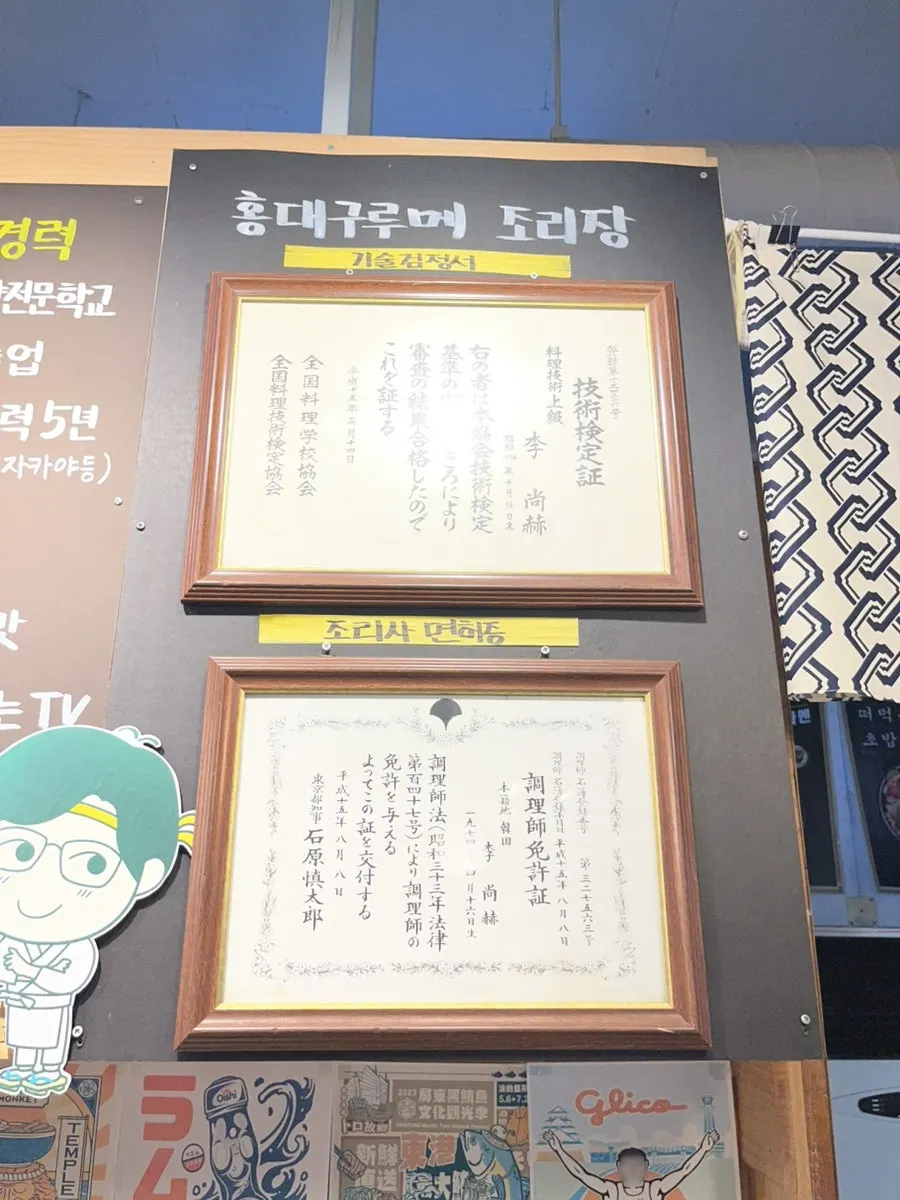 홍대구루메 조리장
기술검정서
技術検定証
料理技術上級
李 尚赫
右の者は本協会技術検定
基準の
ろにより
審査の結果合格したので
これを証する
平成十五年三月十四日
全国料理学校協会
全国料理技術検定協会
조리사 면허증
第三二七五六三号
平成十五年八月八日
調理師免許証
本籍地 韓国
李 尚赫
四月十六日生
調理師法(昭和三十三年法律
第百四十七号)により調理師の
免許を与える
よってこの証を交付する
平成十五年八月八日
東京都知事 石原慎太郎
경력
전문학교
업
력 5년
자카야등)
맛
는 TV
떠먹
초밥
MONKEY
TEMPLE
ラム
Oishi
トロ故郷
文化觀光季
5.6
新鮮
東港
大
Glico